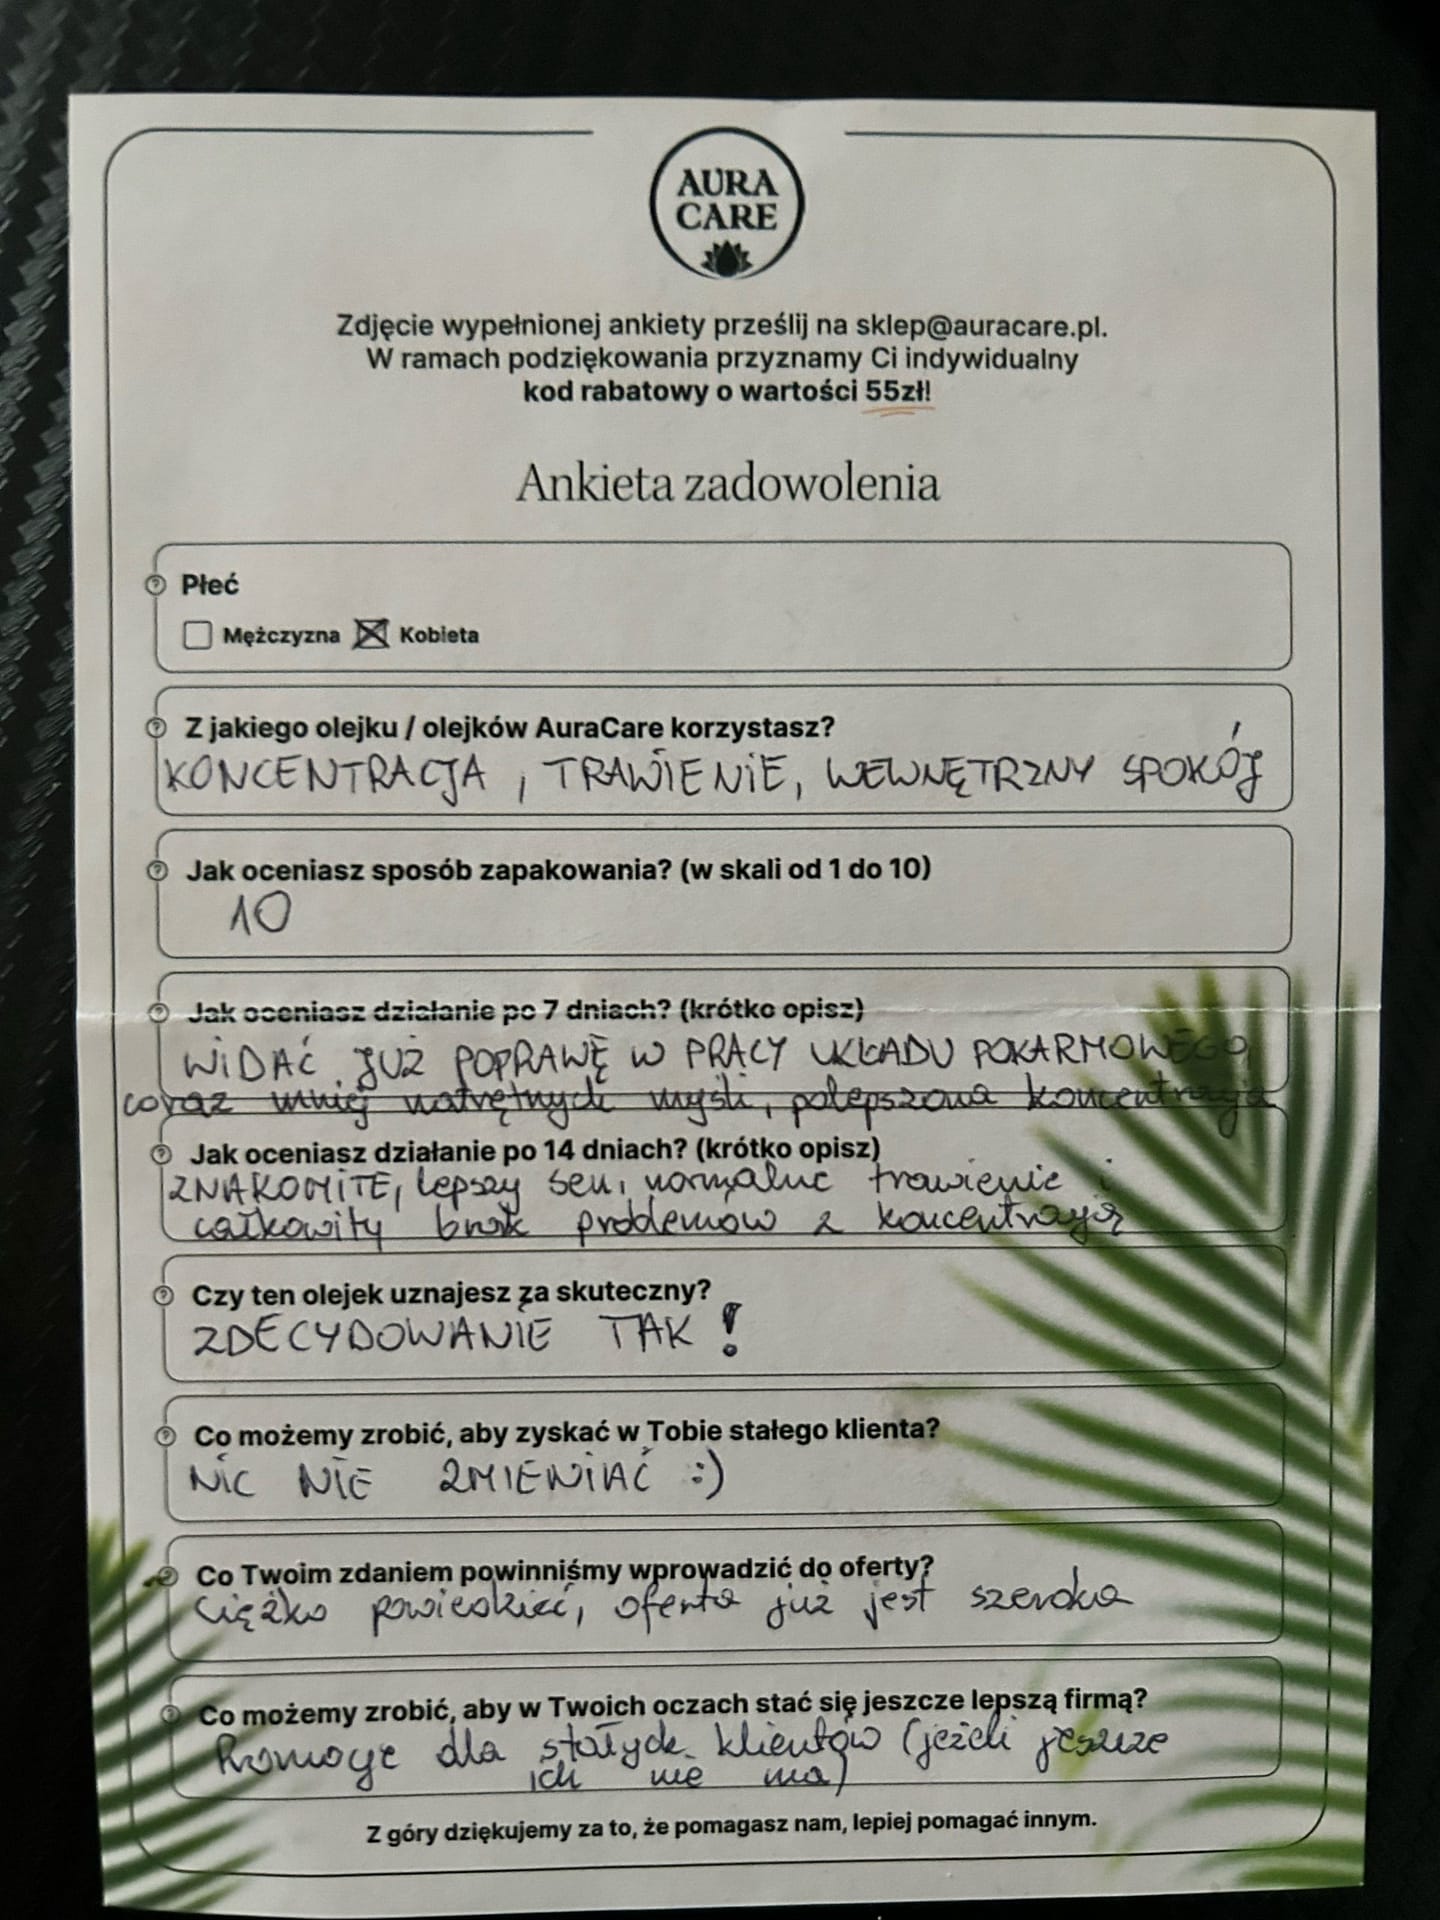 AURA
CARE
Zdjęcie wypełnionej ankiety prześlij na sklep@auracare.pl.
W ramach podziękowania przyznamy Ci indywidualny
kod rabatowy o wartości 55zł!
Ankieta zadowolenia
Płeć
Mężczyzna Kobieta
Z jakiego olejku / olejków AuraCare korzystasz?
KONCENTRACJA, TRAWIENIE, WEWNĘTRZNY SPOKÓJ
Jak oceniasz sposób zapakowania? (w skali od 1 do 10)
10
Jak oceniasz działanie po 7 dniach? (krótko opisz)
WIDAĆ JUŻ POPRAWĘ W PRACY UKŁADU POKARMOWEGO,
coraz mniej natrętnych myśli, polepszona koncentracja
Jak oceniasz działanie po 14 dniach? (krótko opisz)
ZNAKOMITE, lepszy sen, normalne trawienie i
całkowity brak problemów z koncentracją
Czy ten olejek uznajesz za skuteczny?
ZDECYDOWANIE TAK!
Co możemy zrobić, aby zyskać w Tobie stałego klienta?
NIC NIE ZMIENIAĆ :)
Co Twoim zdaniem powinniśmy wprowadzić do oferty?
Ciężko powiedzieć, oferta już jest szeroka
Co możemy zrobić, aby w Twoich oczach stać się jeszcze lepszą firmą?
Promocje dla stałych klientów (jeżeli jeszcze
ich nie ma)
Z góry dziękujemy za to, że pomagasz nam, lepiej pomagać innym.